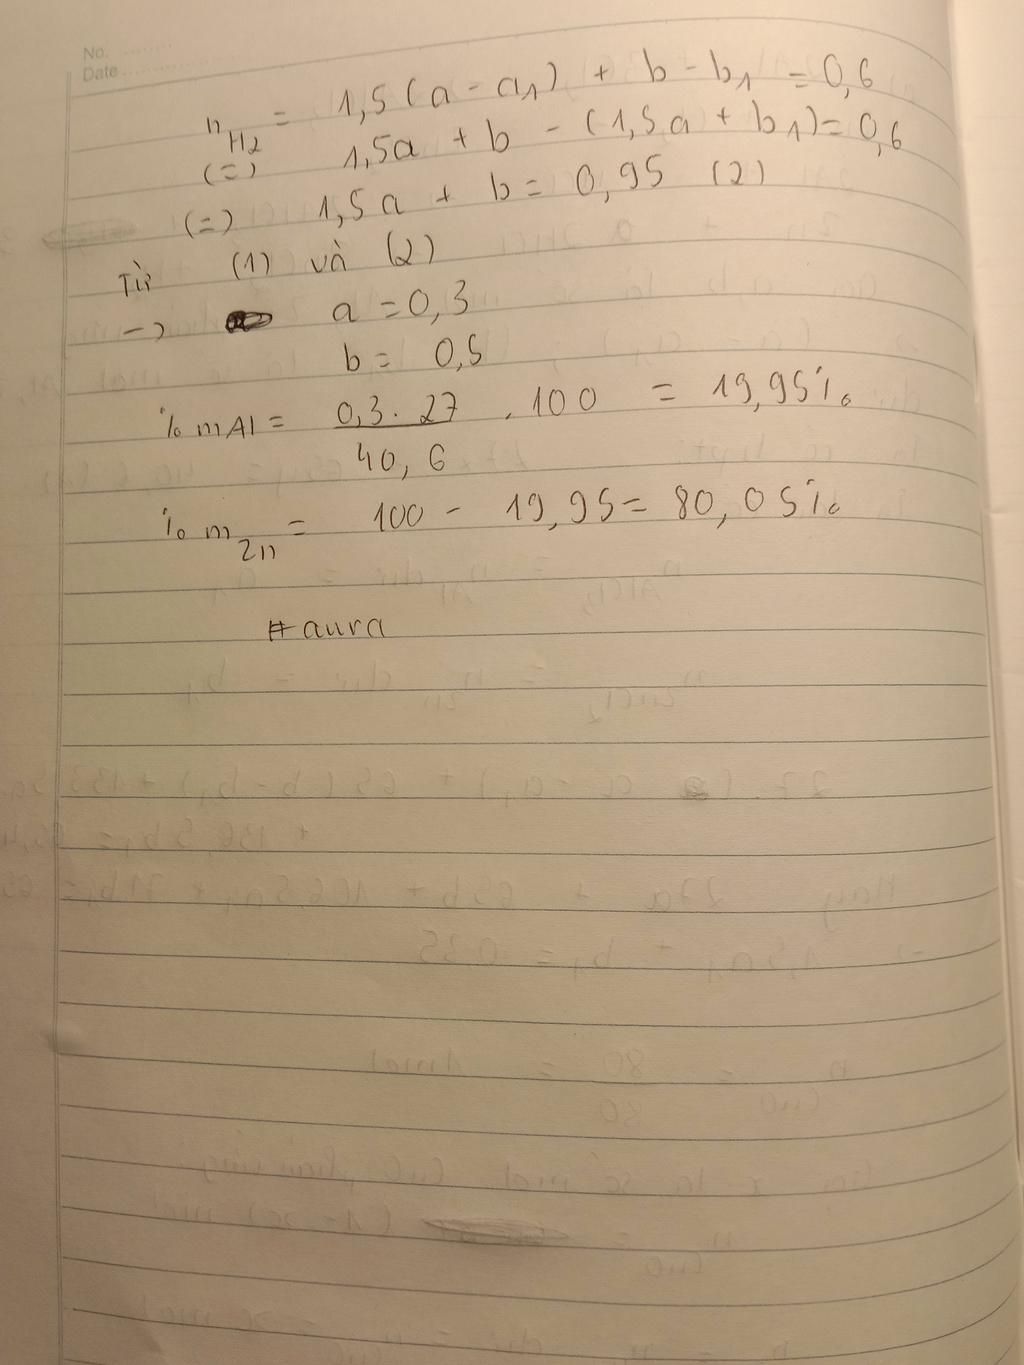 No. ........
Date ............
n H2 = 1,5(a - a1) + b - b1 = 0,6
(=) 1,5a + b - (1,5a + b1) = 0,6
(=) 1,5a + b = 0,95 (2)
Từ (1) và (2)
-> a = 0,3
b = 0,5
% mAl = 0,3 . 27 / 40,6 . 100 = 19,95%
% m Zn = 100 - 19,95 = 80,05%
# aura